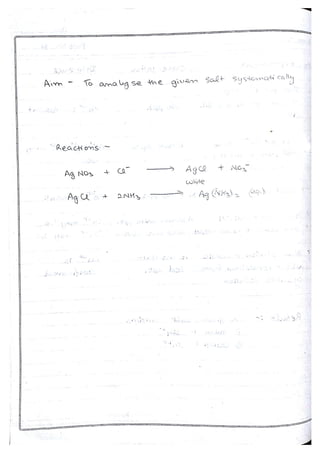 Aim - To analyse the given salt systematically
Reactions -
AgNO3 + Cl⁻ ⟶ AgCl + NO3⁻
white
AgCl + 2NH3 ⟶ Ag(NH3)2 (aq)